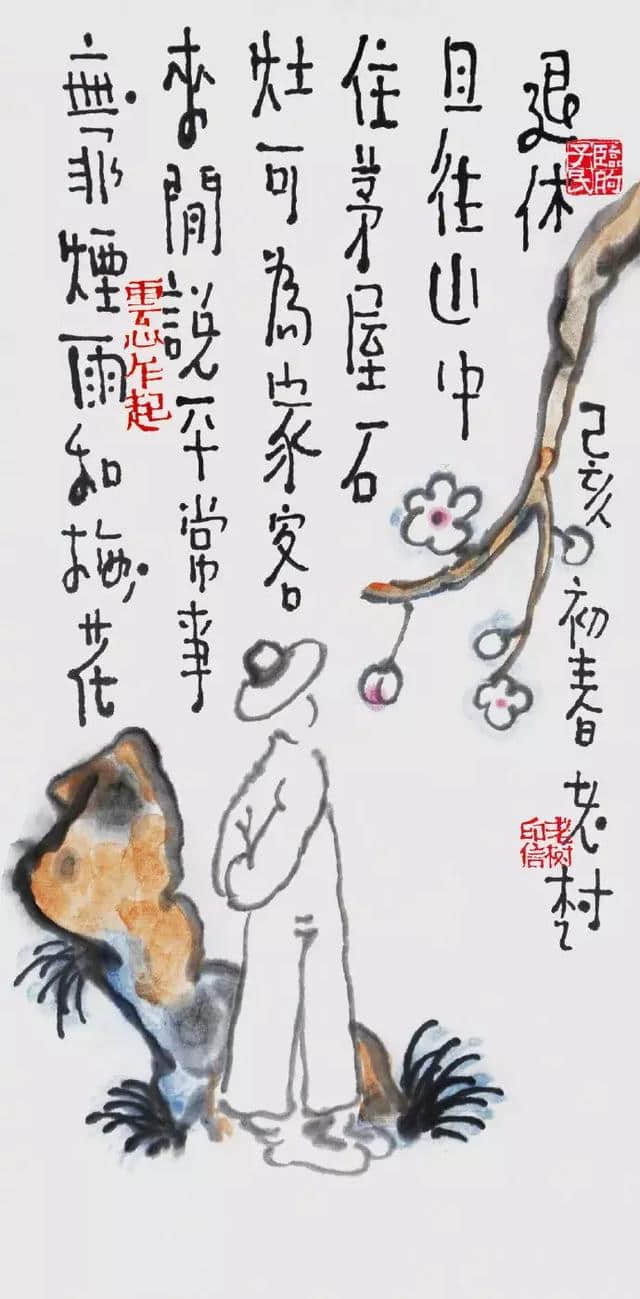 退休
且往山中
住茅屋石
灶可為家客
來閒說平常事
無非煙雨和梅花
己亥初春老树
臨朐子民
雲心乍起
老树印信